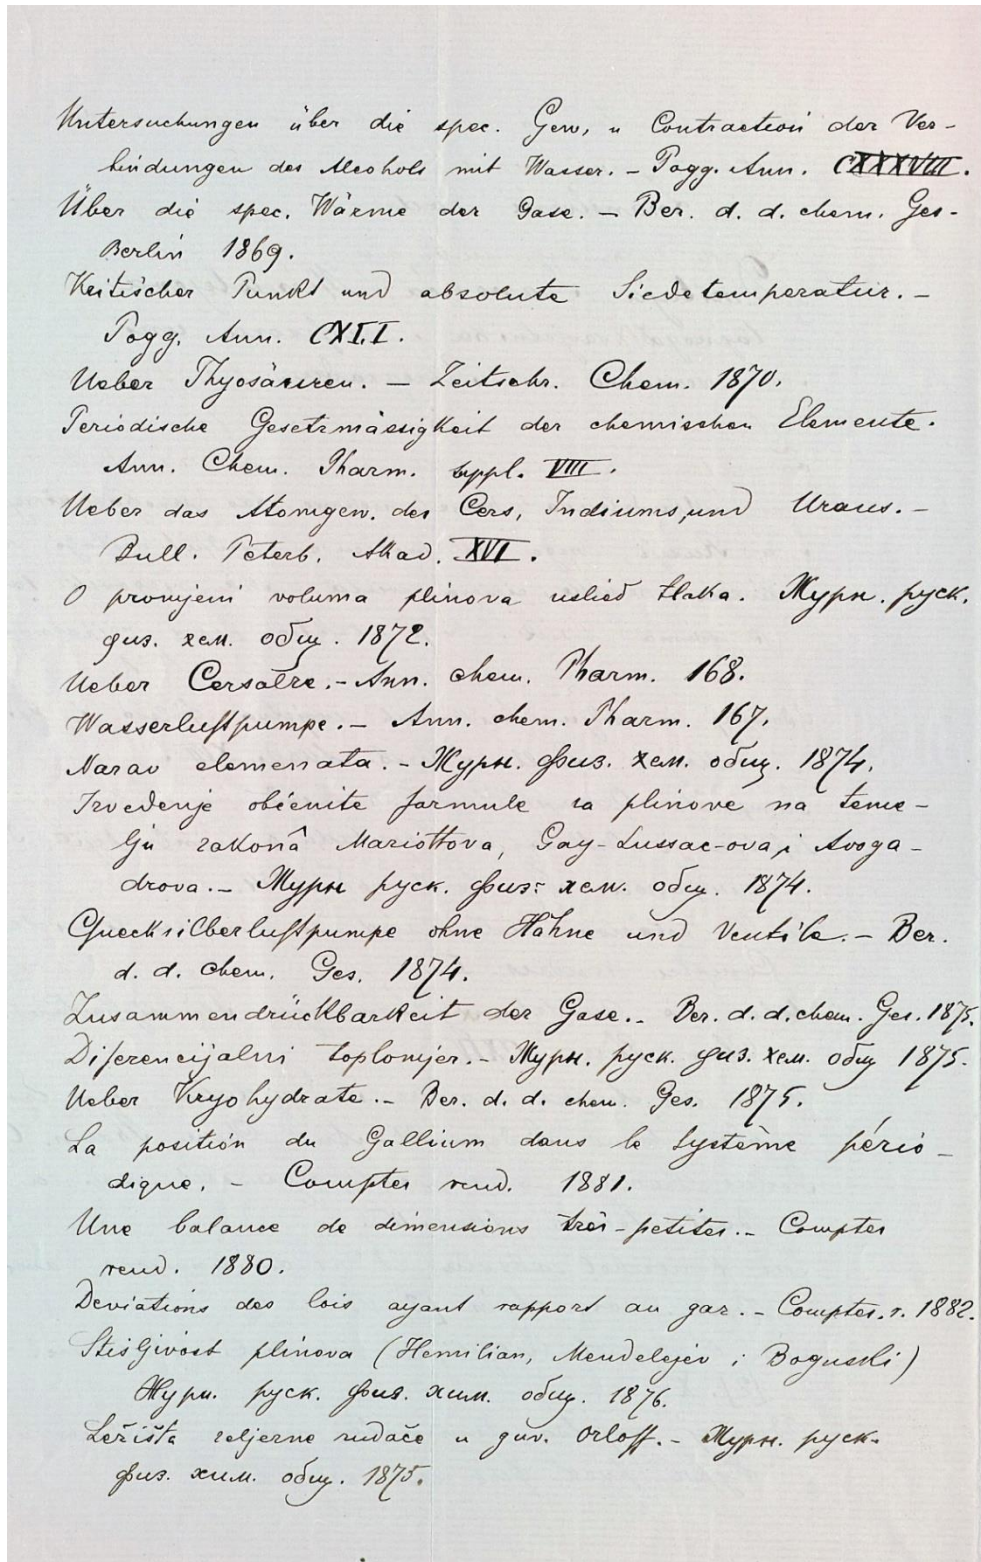 Untersuchungen über die spec. Gew. u Contraction der Ver-
bindungen des Alcohols mit Wasser. - Pogg. Ann. CXXXVIII.
Über die spec. Wärme der Gase. - Ber. d. d. chem. Ges.
Berlin 1869.
Kritischer Punkt und absolute Siedetemperatur. -
Pogg. Ann. CXLI.
Ueber Thyosäuren. - Zeitschr. Chem. 1870.
Periodische Gesetzmässigkeit der chemischen Elemente.
Ann. Chem. Pharm. suppl. VIII.
Ueber das Atomgew. des Cers, Indiums, und Urans. -
Bull. Peterb. Akad. XVI.
O promjeni voluma plinova uslied tlaka. Журн. руск.
физ. хем. общ. 1872.
Ueber Cersalze. - Ann. chem. Pharm. 168.
Wasserluftpumpe. - Ann. chem. Pharm. 167.
Narav elemenata. - Журн. физ. хем. общ. 1874.
Izvedenje obćenite formule za plinove na teme-
lju zakonâ Mariottova, Gay-Lussac-ova i Avoga-
drova. - Журн руск. физ. хем. общ. 1874.
Quecksilberluftpumpe ohne Hähne und Ventile. - Ber.
d. d. chem. Ges. 1874.
Zusammendrückbarkeit der Gase. - Ber. d. d. chem. Ges. 1875.
Diferencijalni toplomjer. - Журн. руск. физ. хем. общ 1875.
Ueber Kryohydrate. - Ber. d. d. chem. Ges. 1875.
La position du Gallium dans le système pério-
dique. - Comptes rend. 1881.
Une balance de dimensions très-petites. - Comptes
rend. 1880.
Deviations des lois ayant rapport au gaz. - Comptes. r. 1882.
Stisljivost plinova (Hemilian, Mendelejev i Boguski)
Журн. руск. физ. хим. общ. 1876.
Ležišta zeljezne rudače u guv. Orloff. - Журн. руск.
физ. хим. общ. 1875.